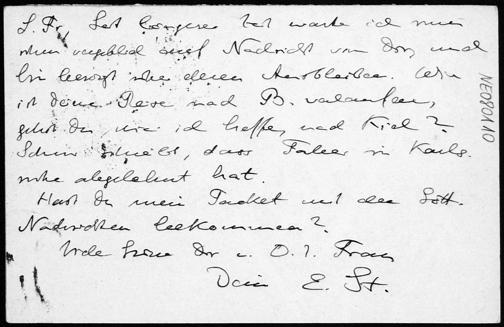 L. Fr, Seit längerer Zeit warte ich nun
schon vergeblich auf Nachricht von Dir, und
bin besorgt über deren Ausbleiben. Wie
ist deine Reise nach B. verlaufen,
gehst du, wie ich hoffe, nach Kiel?
Schur schreibt, dass Faber in Karls-
ruhe abgelehnt hat.
Hast du mein Packet mit den Gött.
Nachrichten bekommen?
Viele Grüsse Dir u. D. l. Frau
Dein E. St.
NE080110